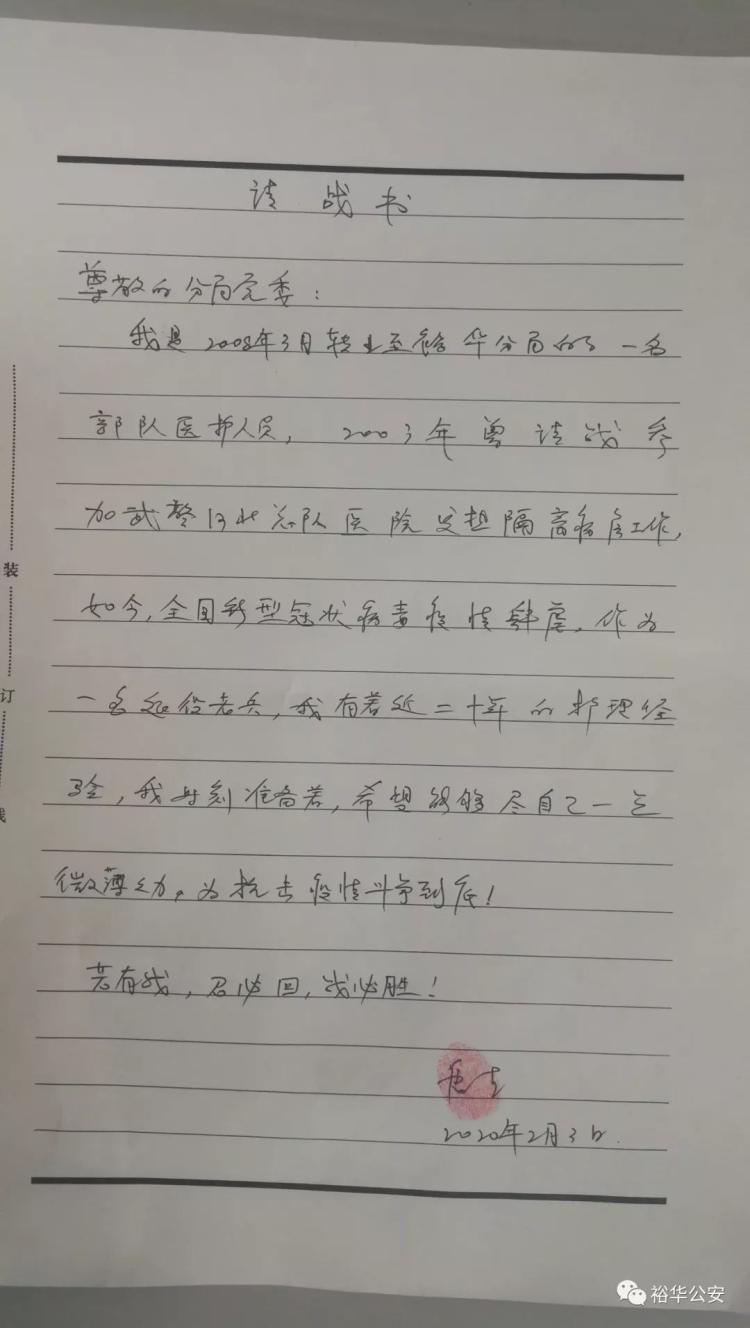 请战书
尊敬的分局党委：
我是2008年3月转业至裕华分局的一名
部队医护人员，2003年曾请战参
加武警河北总队医院发担隔离病房工作，
如今，全国新型冠状病毒疫情肆虐，作为
一名退役老兵，我有着近二十年的护理经
验，我时刻准备着，希望能够尽自己一点
微薄之力，为抗击疫情斗争到底！
若有战，召必回，战必胜！
2020年2月3日.
装
订
线
裕华公安